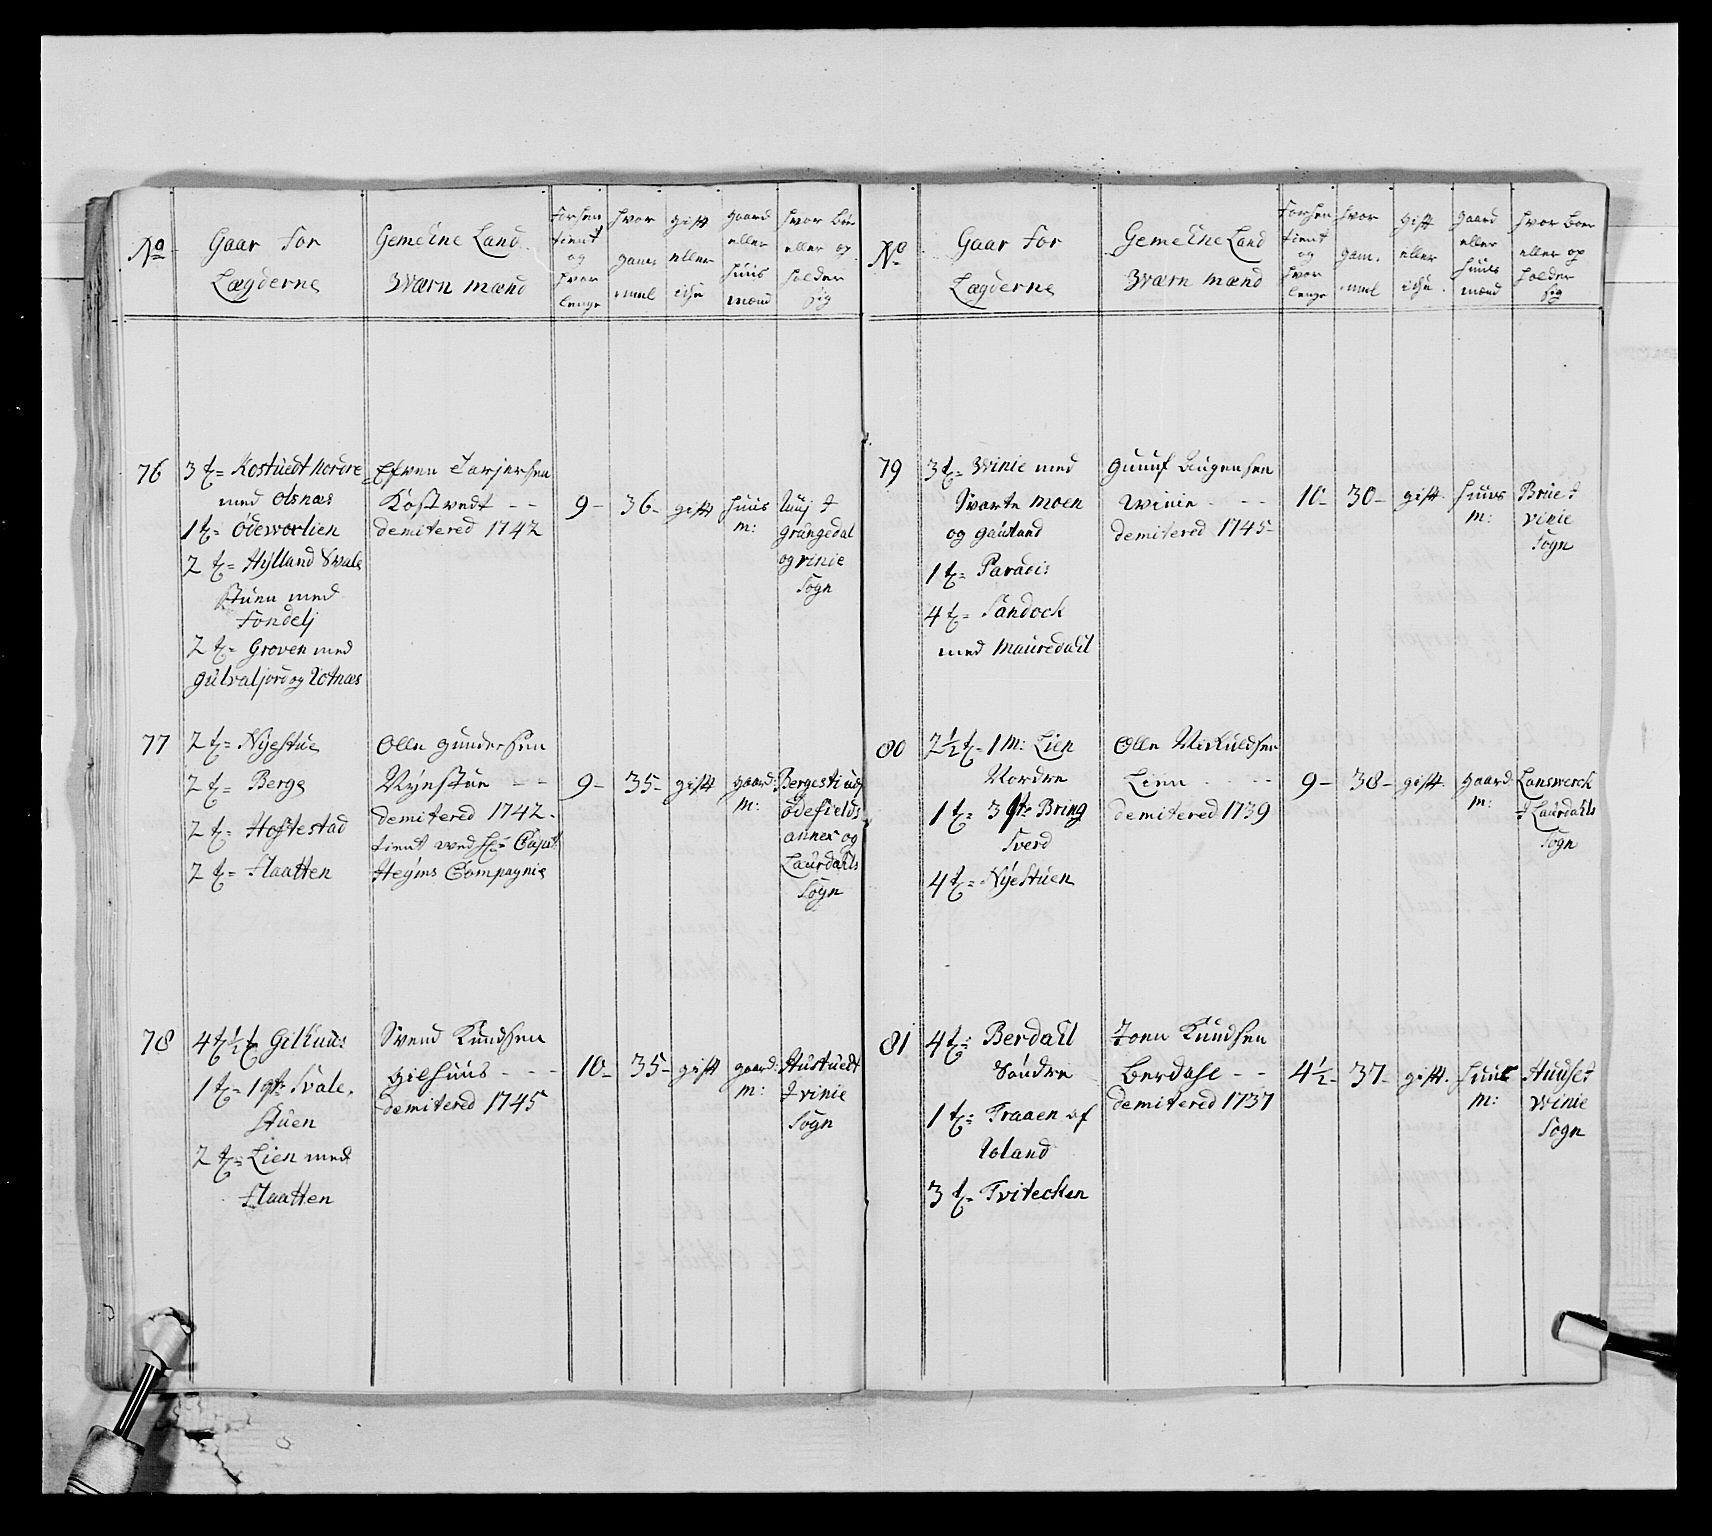 No
Gaar for
Lægderne
Gemeene Land
Wærn mænd
forhen
tient
og
hvor
lenge
hvor
gam-
mel
gift
eller
ikke
gaard
eller
huus
mænd
hvor boer
eller op
holder
sig
76
3 t= Kostuedt nordre
med Olsnæs
1 t= Ødeworlien
2 t= Hylland Swale
stuen med
Fondelj
2 t= Groven med
og Lotnæs
Efven Tarjersen
Kostvedt - -
demitered 1742
9-
36-
gift
huus
m:
Grungedal
og vinie
Sogn
77
2 t= Nyestue
2 t= Berge
2 t= Hoftestad
2 t= Flaatten
Olle Gundersen
Nynstue - -
demitered 1742-
tient wed Hr Capit
Heyms Compagnie
9-
35-
gift
gaard:
m:
Ødefields
annex og
Laurdahls
Sogn
78
4 t ½ t Gilhuus
1 t= 1 qt= Svale-
stuen
2 t= Lien med
Flaatten
Svend Knudsen
Gilhuus - - -
demitered 1745
10-
35-
gift
gaard:
m:
Hustuedt
I vinie
Sogn
No
Gaar for
Lægderne
Gemeene Land
Wærn mænd
forhen
tient
og
hvor
lenge
hvor
gam-
mel
gift
eller
ikke
gaard
eller
huus
mænd
hvor boer
eller op
holder
sig
79
3 t= Winie med
Svarte moen
og Gauland
1 t= Paradis
4 t= Sandock
med Mauredahl
Gunuf Augensen
Winie - - -
demitered 1745-
10-
30-
gift
huus
m:
Brue I
vinie
Sogn
80
2½ t- 1 m: Lien
Nordre
1 t= 3 qt= Bring
sverd
4 t= Nyestuen
Olle Neskuldsen
Lien - - -
demitered 1739
9-
38-
gift
gaard:
m:
Lanswerck
I Laurdahls
Sogn
81
4 t= Berdahl
Søndre
1 t= Traaen af
Loland
3 t= Tvitecken
Joen Knudsen
Berdahl - -
demitered 1737
4½-
37-
gift.
huus
m:
Huuse I
Winie
Sogn